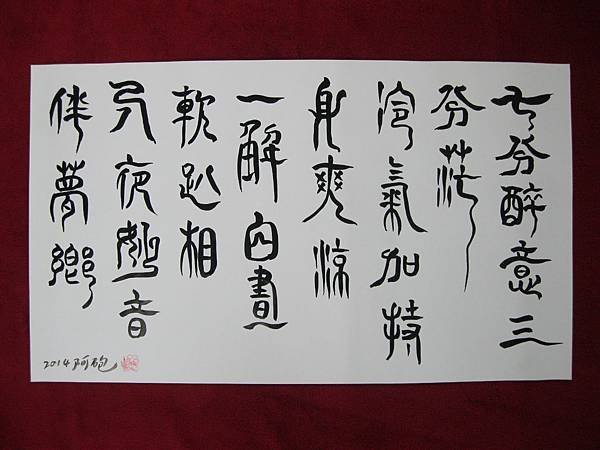 七分醉意三
分茫
冷氣加持
身爽涼
一解白晝
軟趴相
夜妙音
伴夢鄉
2014阿砲